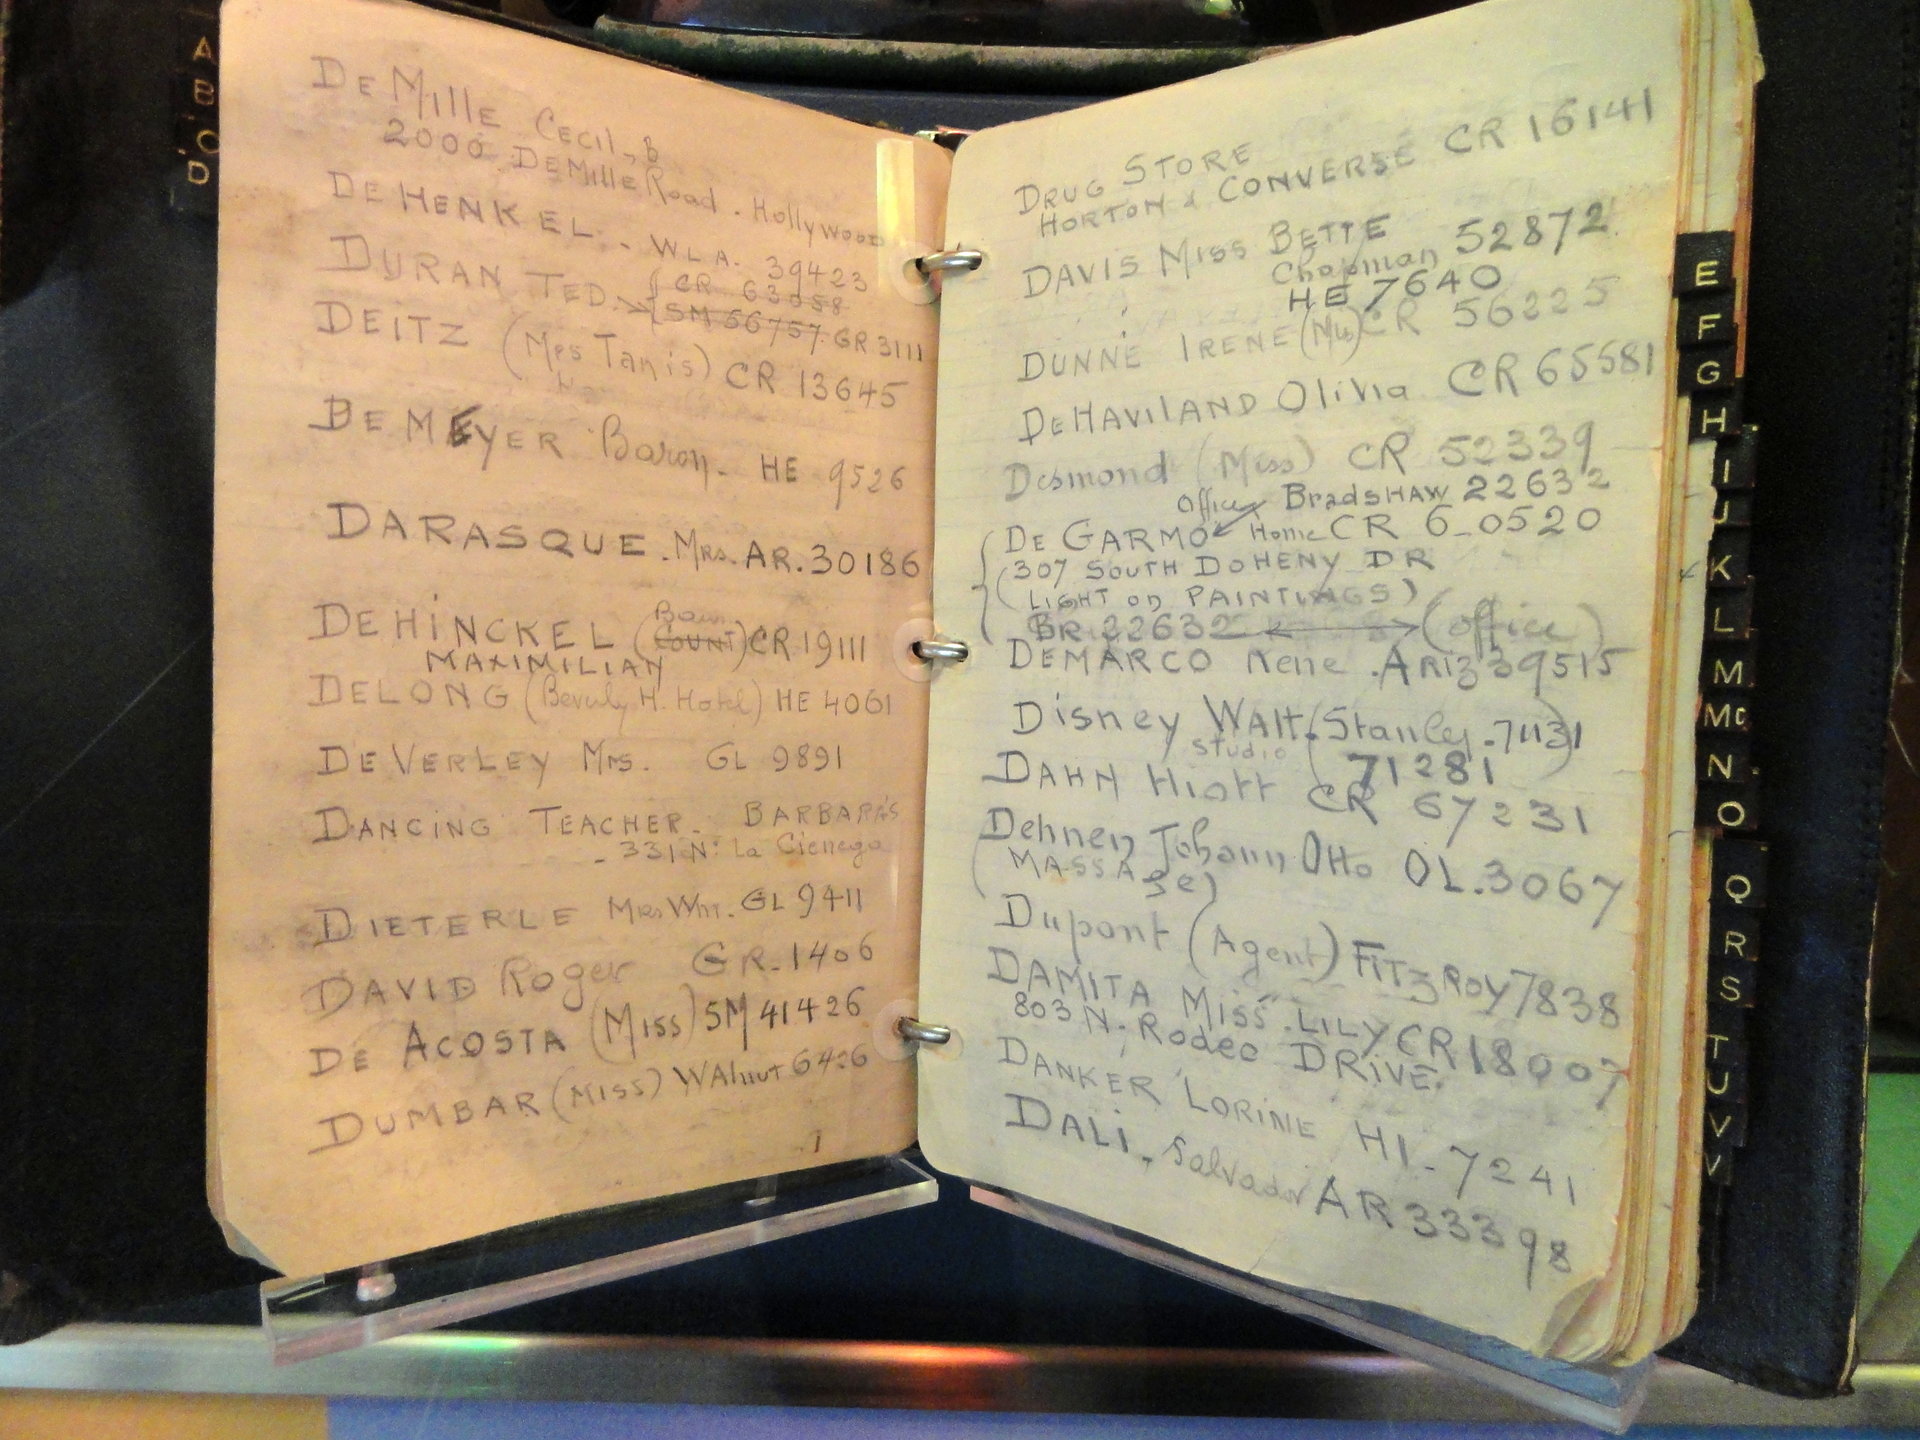 A
B
C
D
DE MILLE CECIL, B
2000 DEMILLE Road. Hollywood
DE HENKEL. - W.L.A. 39423
DURAN TED. CR 63058
SM 56757. GR 3111
DEITZ (Mrs Tanis) CR 13645
DE MEYER Baron. HE 9526
DARASQUE. Mrs. AR. 30186
DEHINCKEL (COUNT) CR 19111
MAXIMILIAN
DELONG (Beverly H. Hotel) HE 4061
DE VERLEY Mrs. GL 9891
DANCING TEACHER. BARBARA'S
- 331 N. La Cienega
DIETERLE Mrs Wm. GL 9411
DAVID Roger GR. 1406
DE ACOSTA (MISS) SM 41426
DUMBAR (MISS) WAlnut 6426
DRUG STORE
HORTON & CONVERSE CR 16141
DAVIS MISS BETTE
Chapman 52872
HE 7640
DUNNE IRENE CR 56225
DEHAVILAND Olivia CR 65581
Desmond (Miss) CR 52339
Office Bradshaw 22632
DE GARMO Home CR 6-0520
(307 SOUTH DOHENY DR
(LIGHT on PAINTINGS)
BR 22632 (office)
DEMARCO Rene. ARIZ 39515
Disney WAlt. (Stanley. 71131)
Studio 71281
DAHN Hiatt CR 67231
Dehnen Johann Otto OL. 3067
(MASSAGE)
Dupont (Agent) FITZROY 7838
DAMITA MISS. LILY CR 18007
803 N. Rodeo DRIVE.
DANKER LORINE HI-7241
DALI - Salvador AR 33398
E
F
G
H
I
J
K
L
M
Mc
N
O
Q
R
S
T
U
V